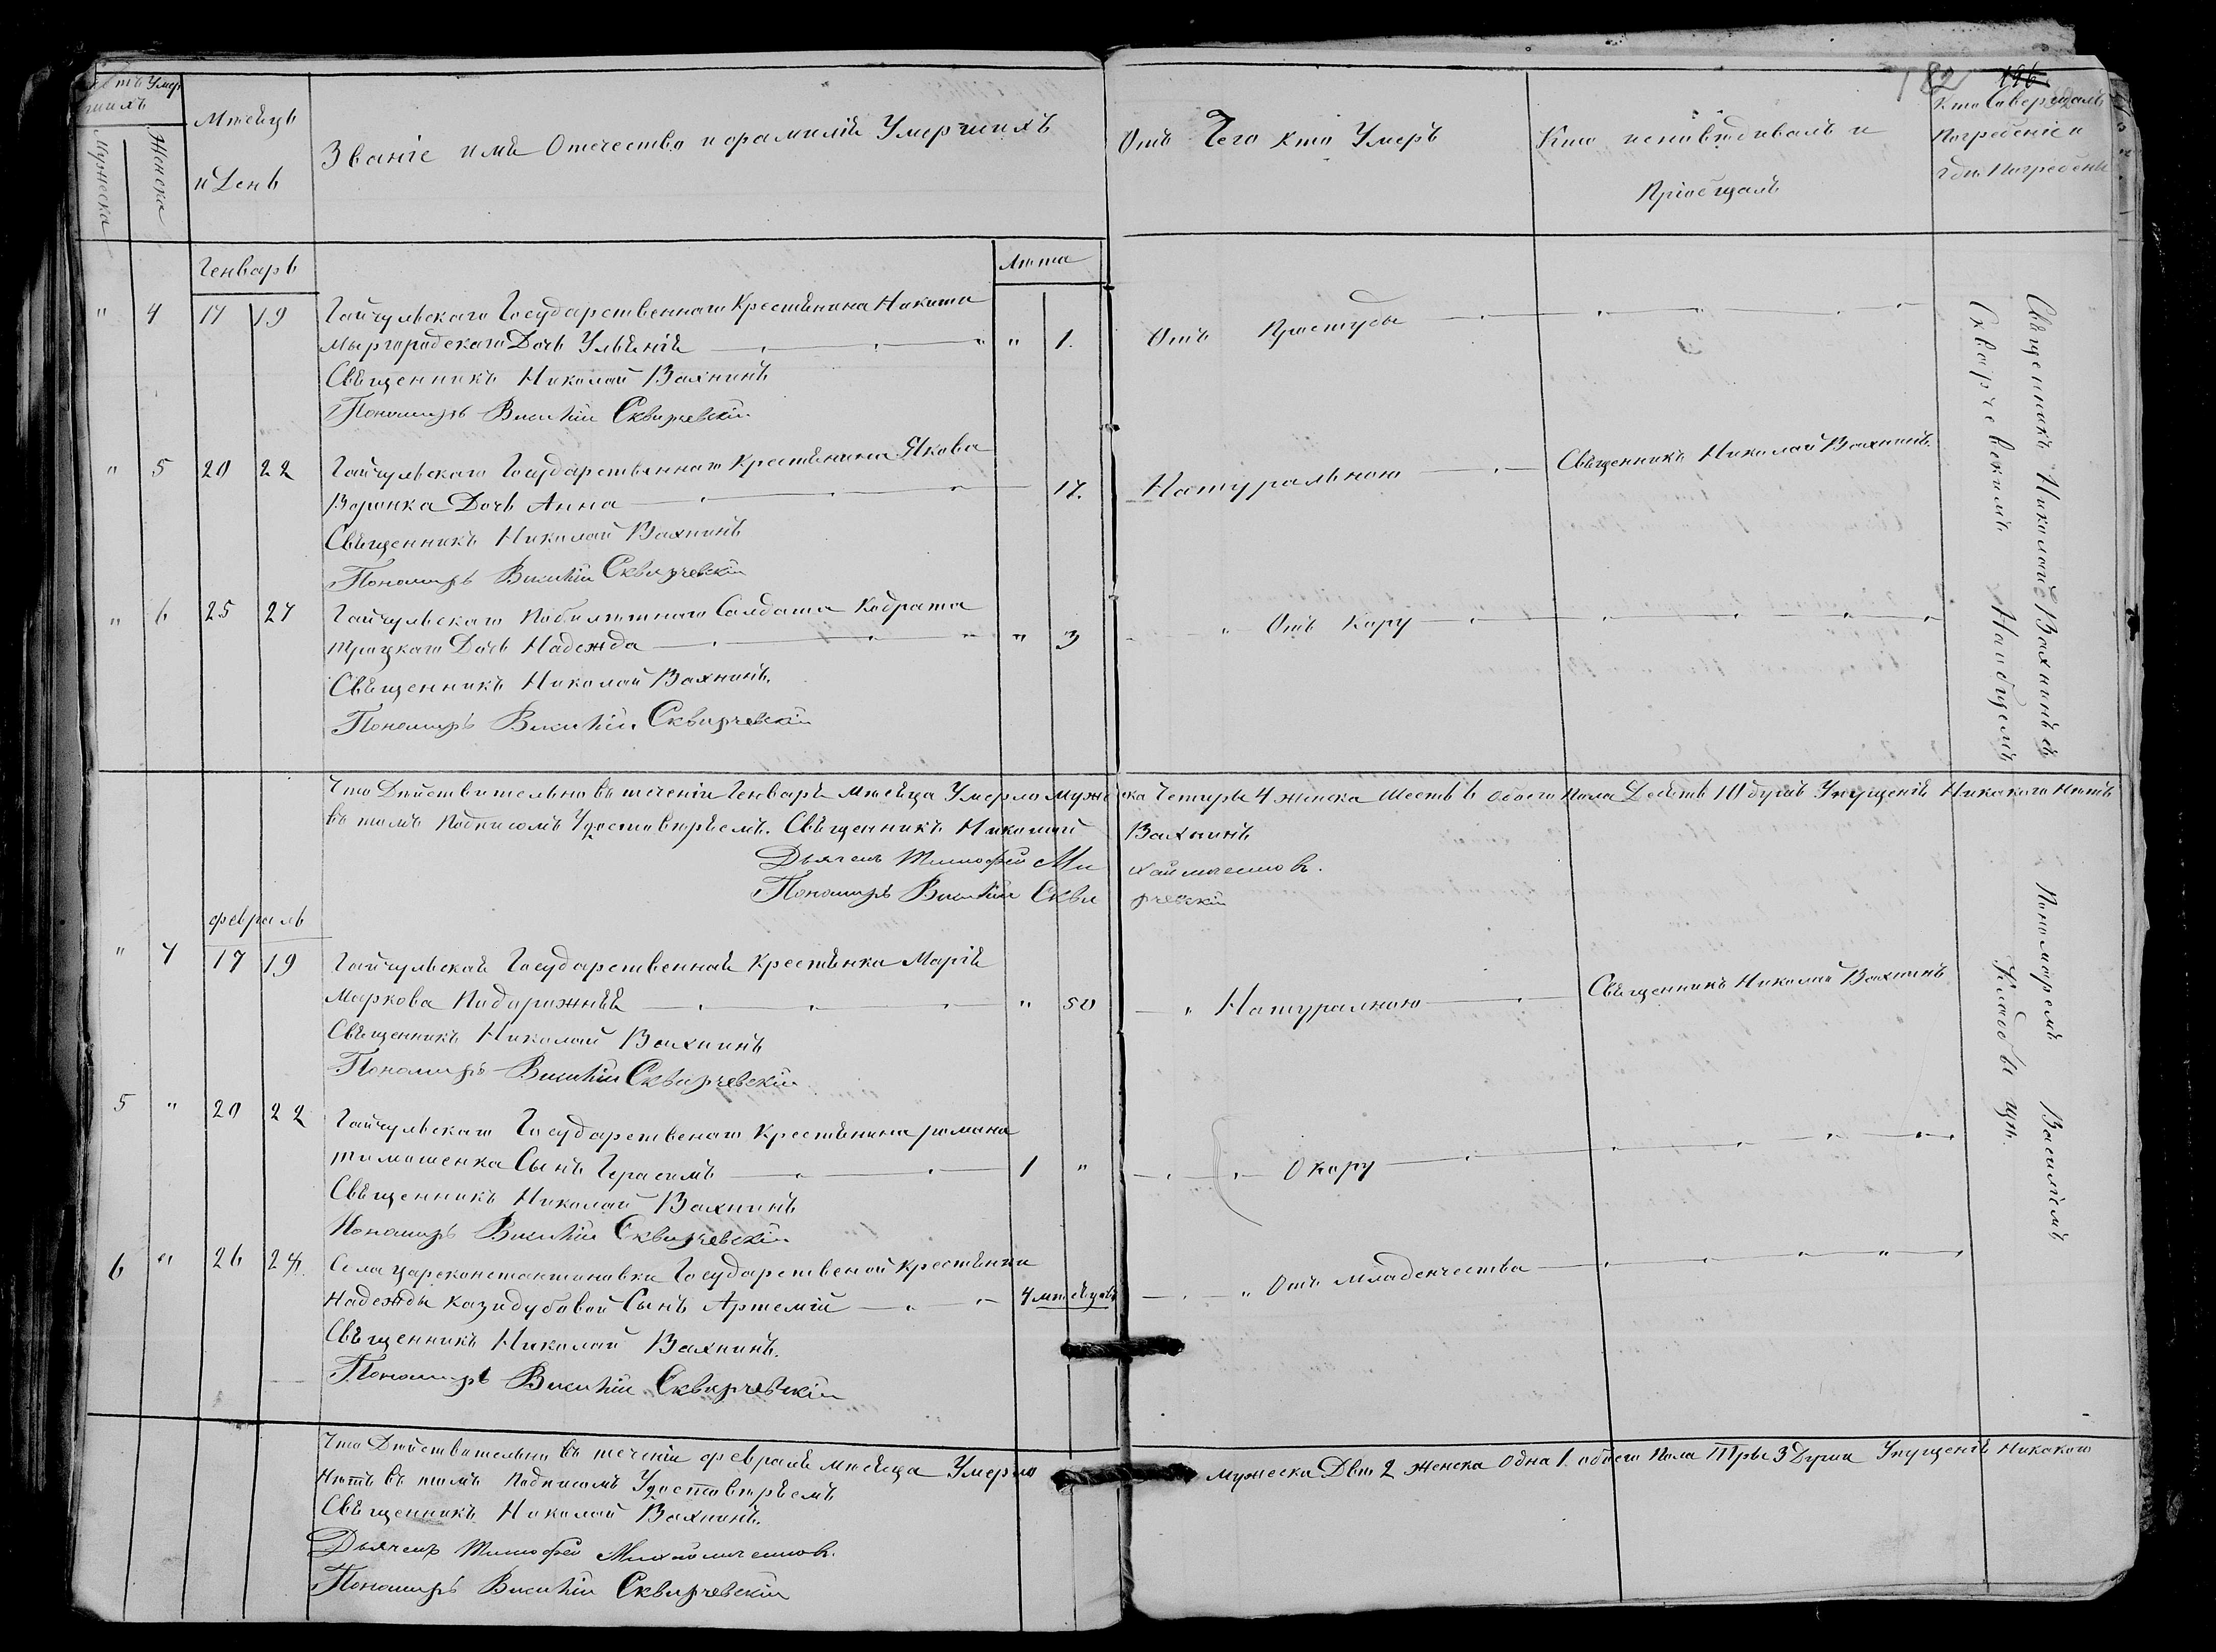 182 196
Счетъ Умер
шихъ
Мужеска
Женска
Мѣсяцъ
и День
Званіе имя Отечество и фамилія Умершихъ
Отъ Чего кто Умеръ
Кто исповѣдивалъ и
Пріобщалъ
Кто Совершалъ
Погребеніе и
гдѣ Погребены
Генварь
Лѣта
" 4 17 19 Гайчульскаго Государственнаго Крестянина Никиты
Миргородскаго Дочь Ульянія " 1. Отъ Простуды
Священникъ Николай Вахнинъ
Пономарь Василій Скварчевскій
" 5 20 22 Гайчульскаго Государственнаго Крестянина Якова
Воронка Дочь Анна 17. Натуральною Священникъ Николай Вахнинъ.
Священникъ Николай Вахнинъ
Пономарь Василій Скварчевскій
" 6 25 27 Гайчульскаго Побилѣтнаго Солдата Кодрата
Троцкаго Дочь Надежда " 3 " Отъ Кору
Священникъ Николай Вахнинъ.
Пономарь Василій Скварчевскій
Священникъ Николай Вахнинъ съ Пономаремъ Василіемъ
Скварчевскимъ На общемъ Кладбищѣ.
Что Дѣйствительно въ теченіи Генваря Мѣсяца Умерло Мужеска Четыри 4 женска Шесть 6 Обоего Пола Десять 10 душъ Упущенія Никакого Нѣтъ
въ томъ Подписомъ Удостовѣряемъ. Священникъ Николай Вахнинъ
Дьячекъ Тимофей Михайличенковъ.
Пономарь Василій Скварчевскій
февраль
" 7 17 19 Гайчульская Государственная Крестянка Марія
Маркова Падарожняя " 50 " Натуралною Священникъ Николай Вахнинъ
Священникъ Николай Вахнинъ
Пономарь Василій Скварчевскій
5 " 20 22 Гайчульскаго Государственаго Крестянина романа
тимошенка Сынъ Герасимъ 1 " Окору
Священникъ Николай Вахнинъ
Пономарь Василій Скварчевскій
6 " 26 27. Села цареконстантиновки Государственой крестянки
Надежды Казидубовой Сынъ Артемій 4 мѣсяцовъ " Отъ Младенчества
Священникъ Николай Вахнинъ.
Пономарь Василій Скварчевскій
Что Дѣйствительно въ теченіи февраля мѣсяца Умерло Мужеска Двѣ 2 Женска Одна 1. обоего Пола Тры 3 Души Упущенія Никакого
Нѣтъ въ томъ Подписомъ Удостовѣряемъ
Священникъ Николай Вахнинъ.
Дьячекъ Тимофей Михайличенковъ.
Пономарь Василій Скварчевскій